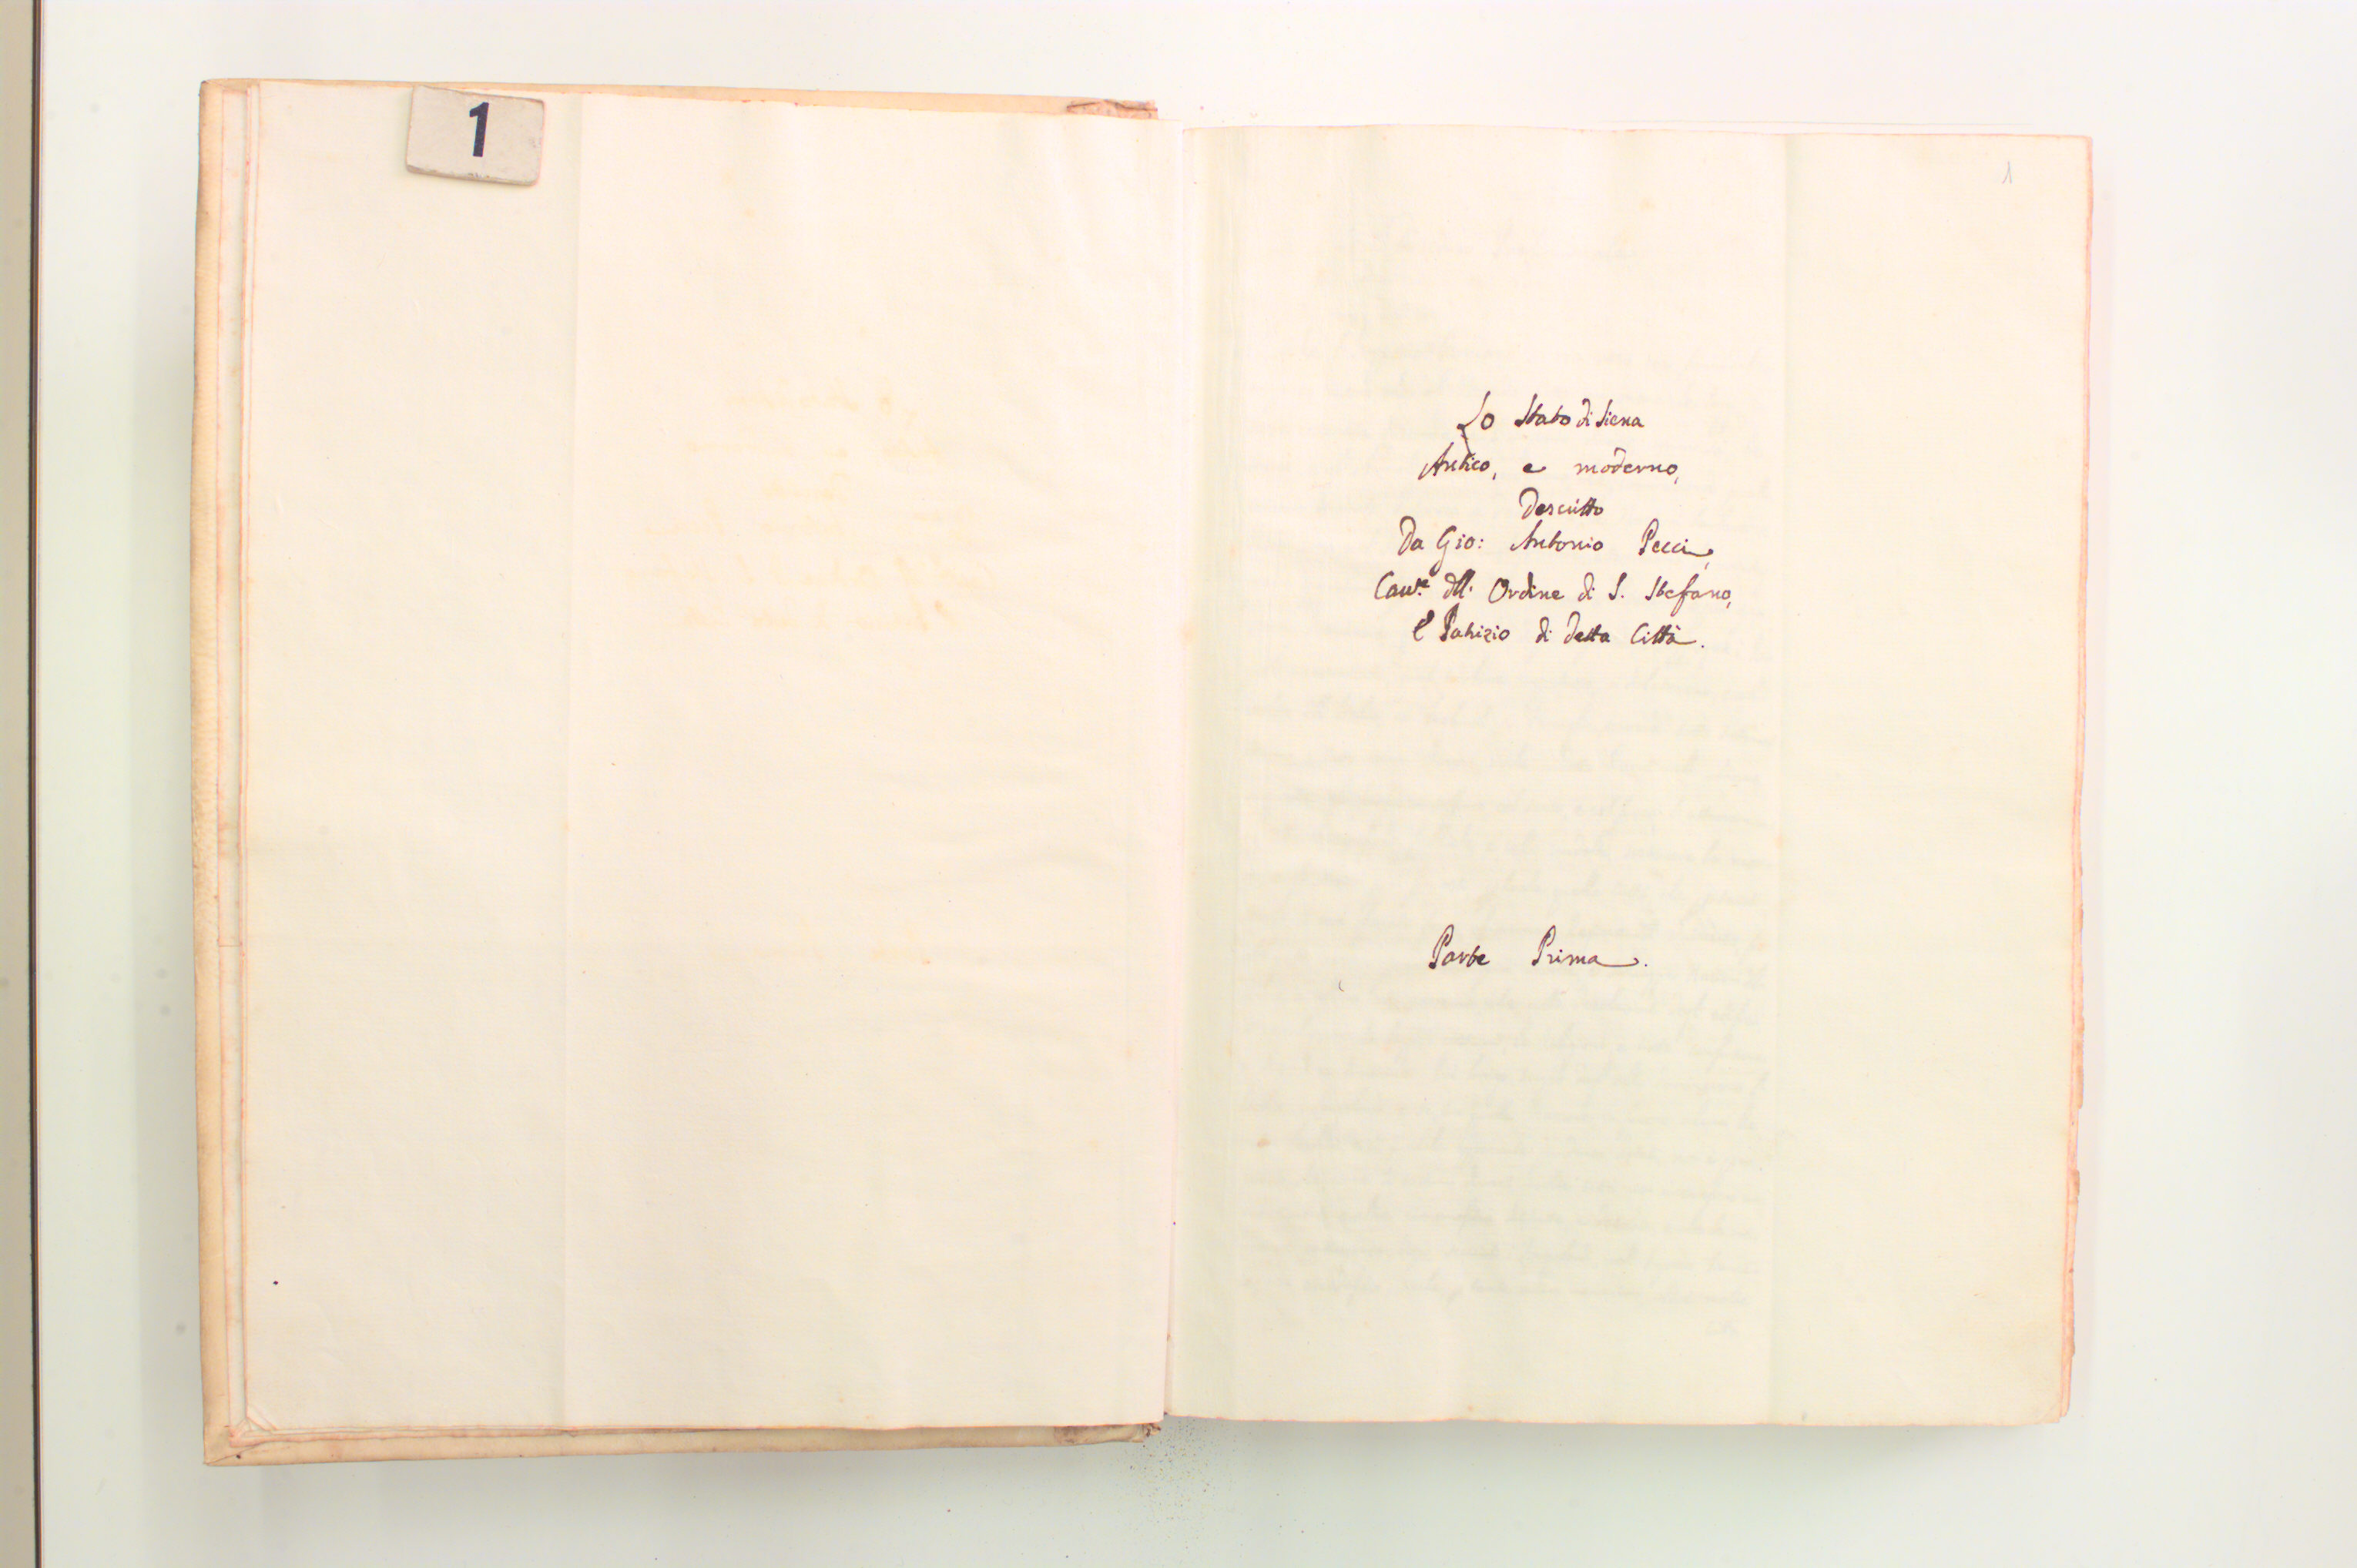 1
1
Lo Stato di Siena
Antico, e moderno,
Descritto
Da Gio: Antonio Pecci,
Cav.re dll' Ordine di S. Stefano,
e Patrizio di detta Città.
Parte Prima.